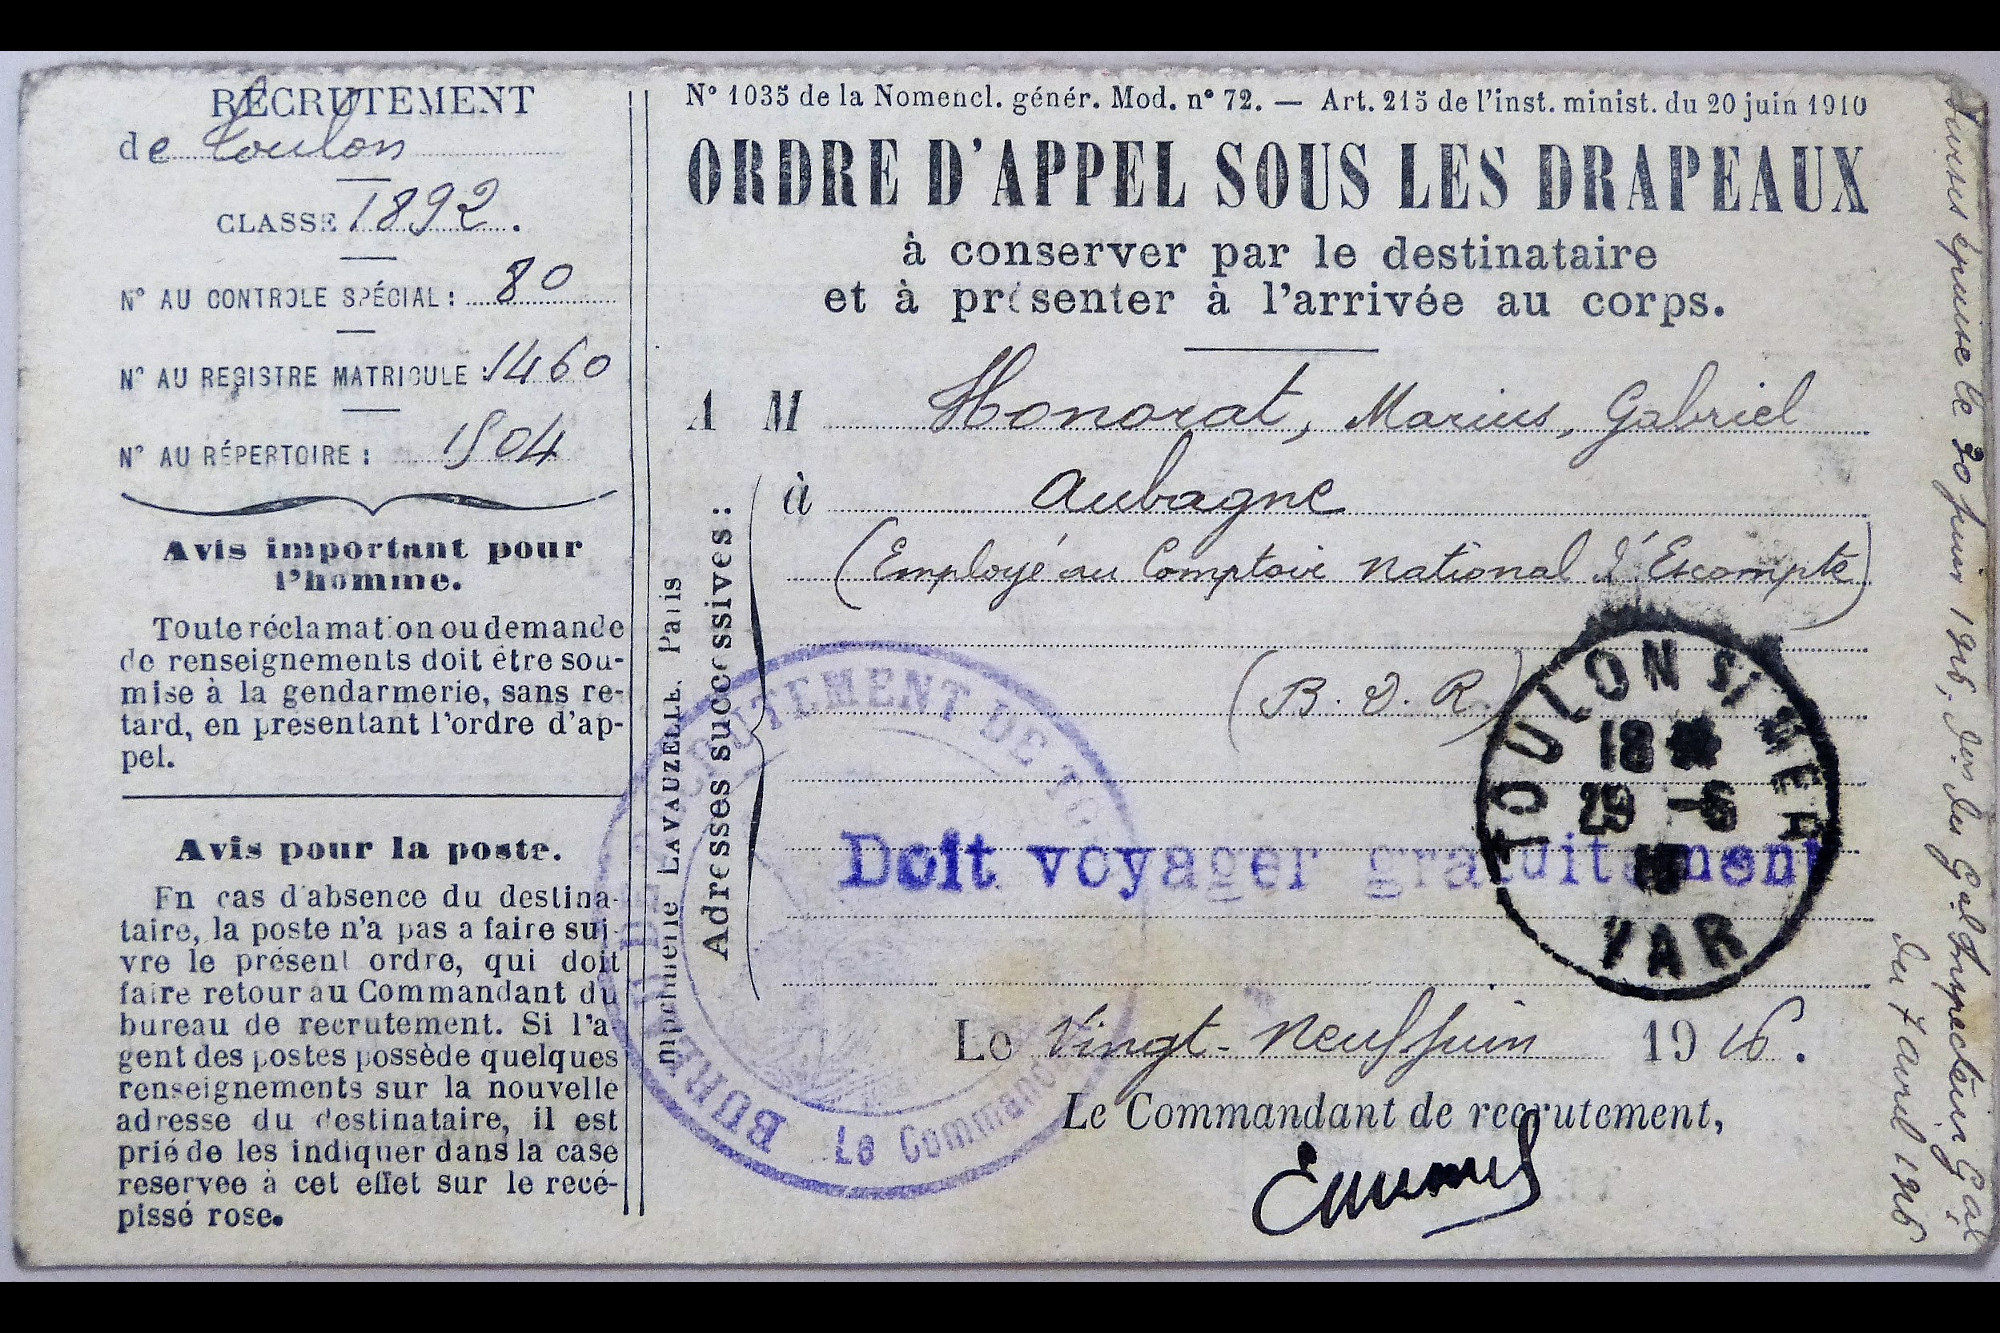 RECRUTEMENT
de Toulon
CLASSE 1892.
N° AU CONTROLE SPÉCIAL : 80
N° AU REGISTRE MATRICULE : 1460
N° AU RÉPERTOIRE : 1504
Avis important pour
l'homme.
Toute réclamation ou demande
de renseignements doit être sou-
mise à la gendarmerie, sans re-
tard, en présentant l'ordre d'ap-
pel.
Avis pour la poste.
En cas d'absence du destina-
taire, la poste n'a pas a faire sui-
vre le présent ordre, qui doit
faire retour au Commandant du
bureau de recrutement. Si l'a-
gent des postes possède quelques
renseignements sur la nouvelle
adresse du destinataire, il est
prié de les indiquer dans la case
reservee à cet effet sur le recé-
pissé rose.
N° 1035 de la Nomencl. génér. Mod. n° 72. — Art. 215 de l'inst. minist. du 20 juin 1910
ORDRE D'APPEL SOUS LES DRAPEAUX
à conserver par le destinataire
et à présenter à l'arrivée au corps.
A M Honorat, Marius, Gabriel
à Aubagne
(Employé au Comptoir National d'Escompte)
(B. D. R.)
Adresses successives :
Imprimerie LAVAUZELLE. Paris
BUREAU DE RECRUTEMENT DE TOULON
Le Commandant
Doit voyager gratuitement
TOULON S/ MER
18
29 - 6
16
VAR
Le Vingt-Neuf Juin 1916.
Le Commandant de recrutement,
Sursis épuisé le 30 juin 1916, Ion du Gal Inspecteur Gal
du 7 avril 1916